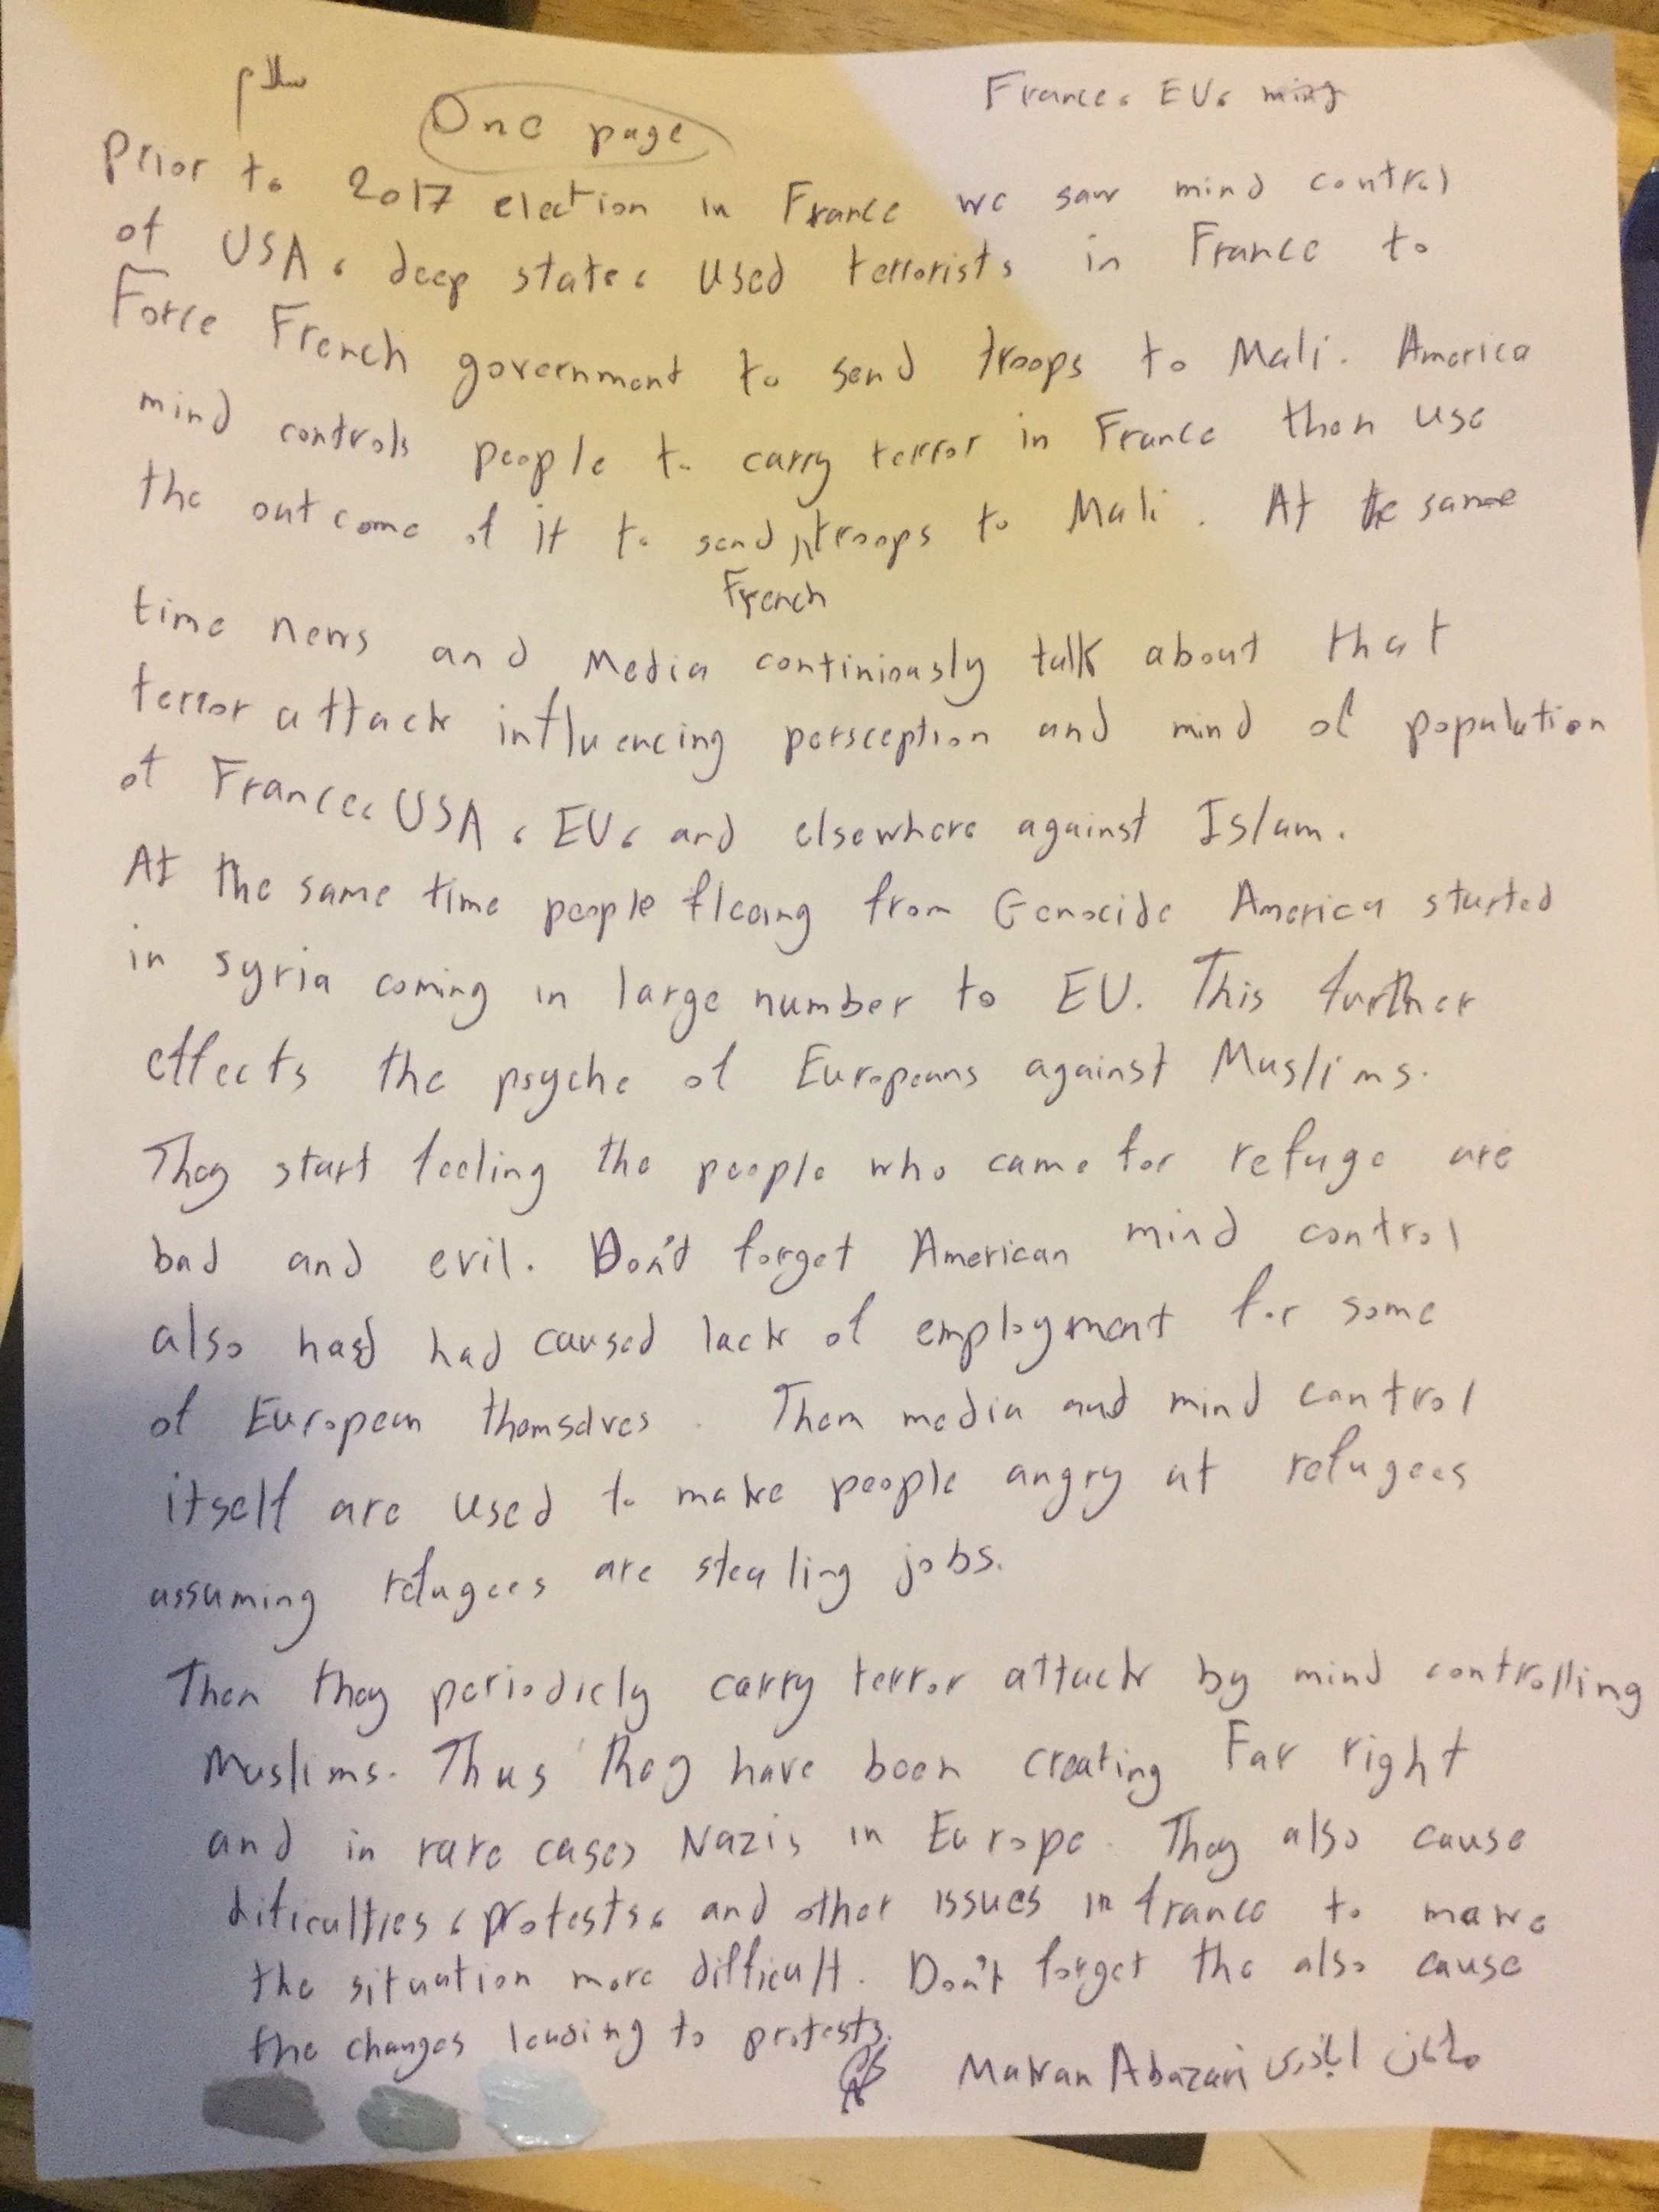 سلام
One page
France، EU، mind
Prior to 2017 election in France we saw mind control
of USA، deep state، used terrorists in France to
Force French government to send troops to Mali. America
mind controls people to carry terror in France then use
the outcome of it to send troops to Mali. At the same
French
time news and Media continiously talk about that
terror attack influencing persception and mind of population
of France، USA، EU، and elsewhere against Islam.
At the same time people fleeing from Genocide America started
in syria coming in large number to EU. This further
effects the psyche of Europeans against Muslims.
They start feeling the people who came for refuge are
bad and evil. Don't forget American mind control
also had had caused lack of employment for some
of European themselves. Then media and mind control
itself are used to make people angry at refugees
assuming refugees are stealing jobs.
Then they periodicly carry terror attack by mind controlling
Muslims. Thus they have been creating Far right
and in rare cases Nazis in Europe. They also cause
dificulties، protests، and other issues in france to make
the situation more difficult. Don't forget the also cause
the changes leading to protests.
Makan Abazari ماکان اباذری